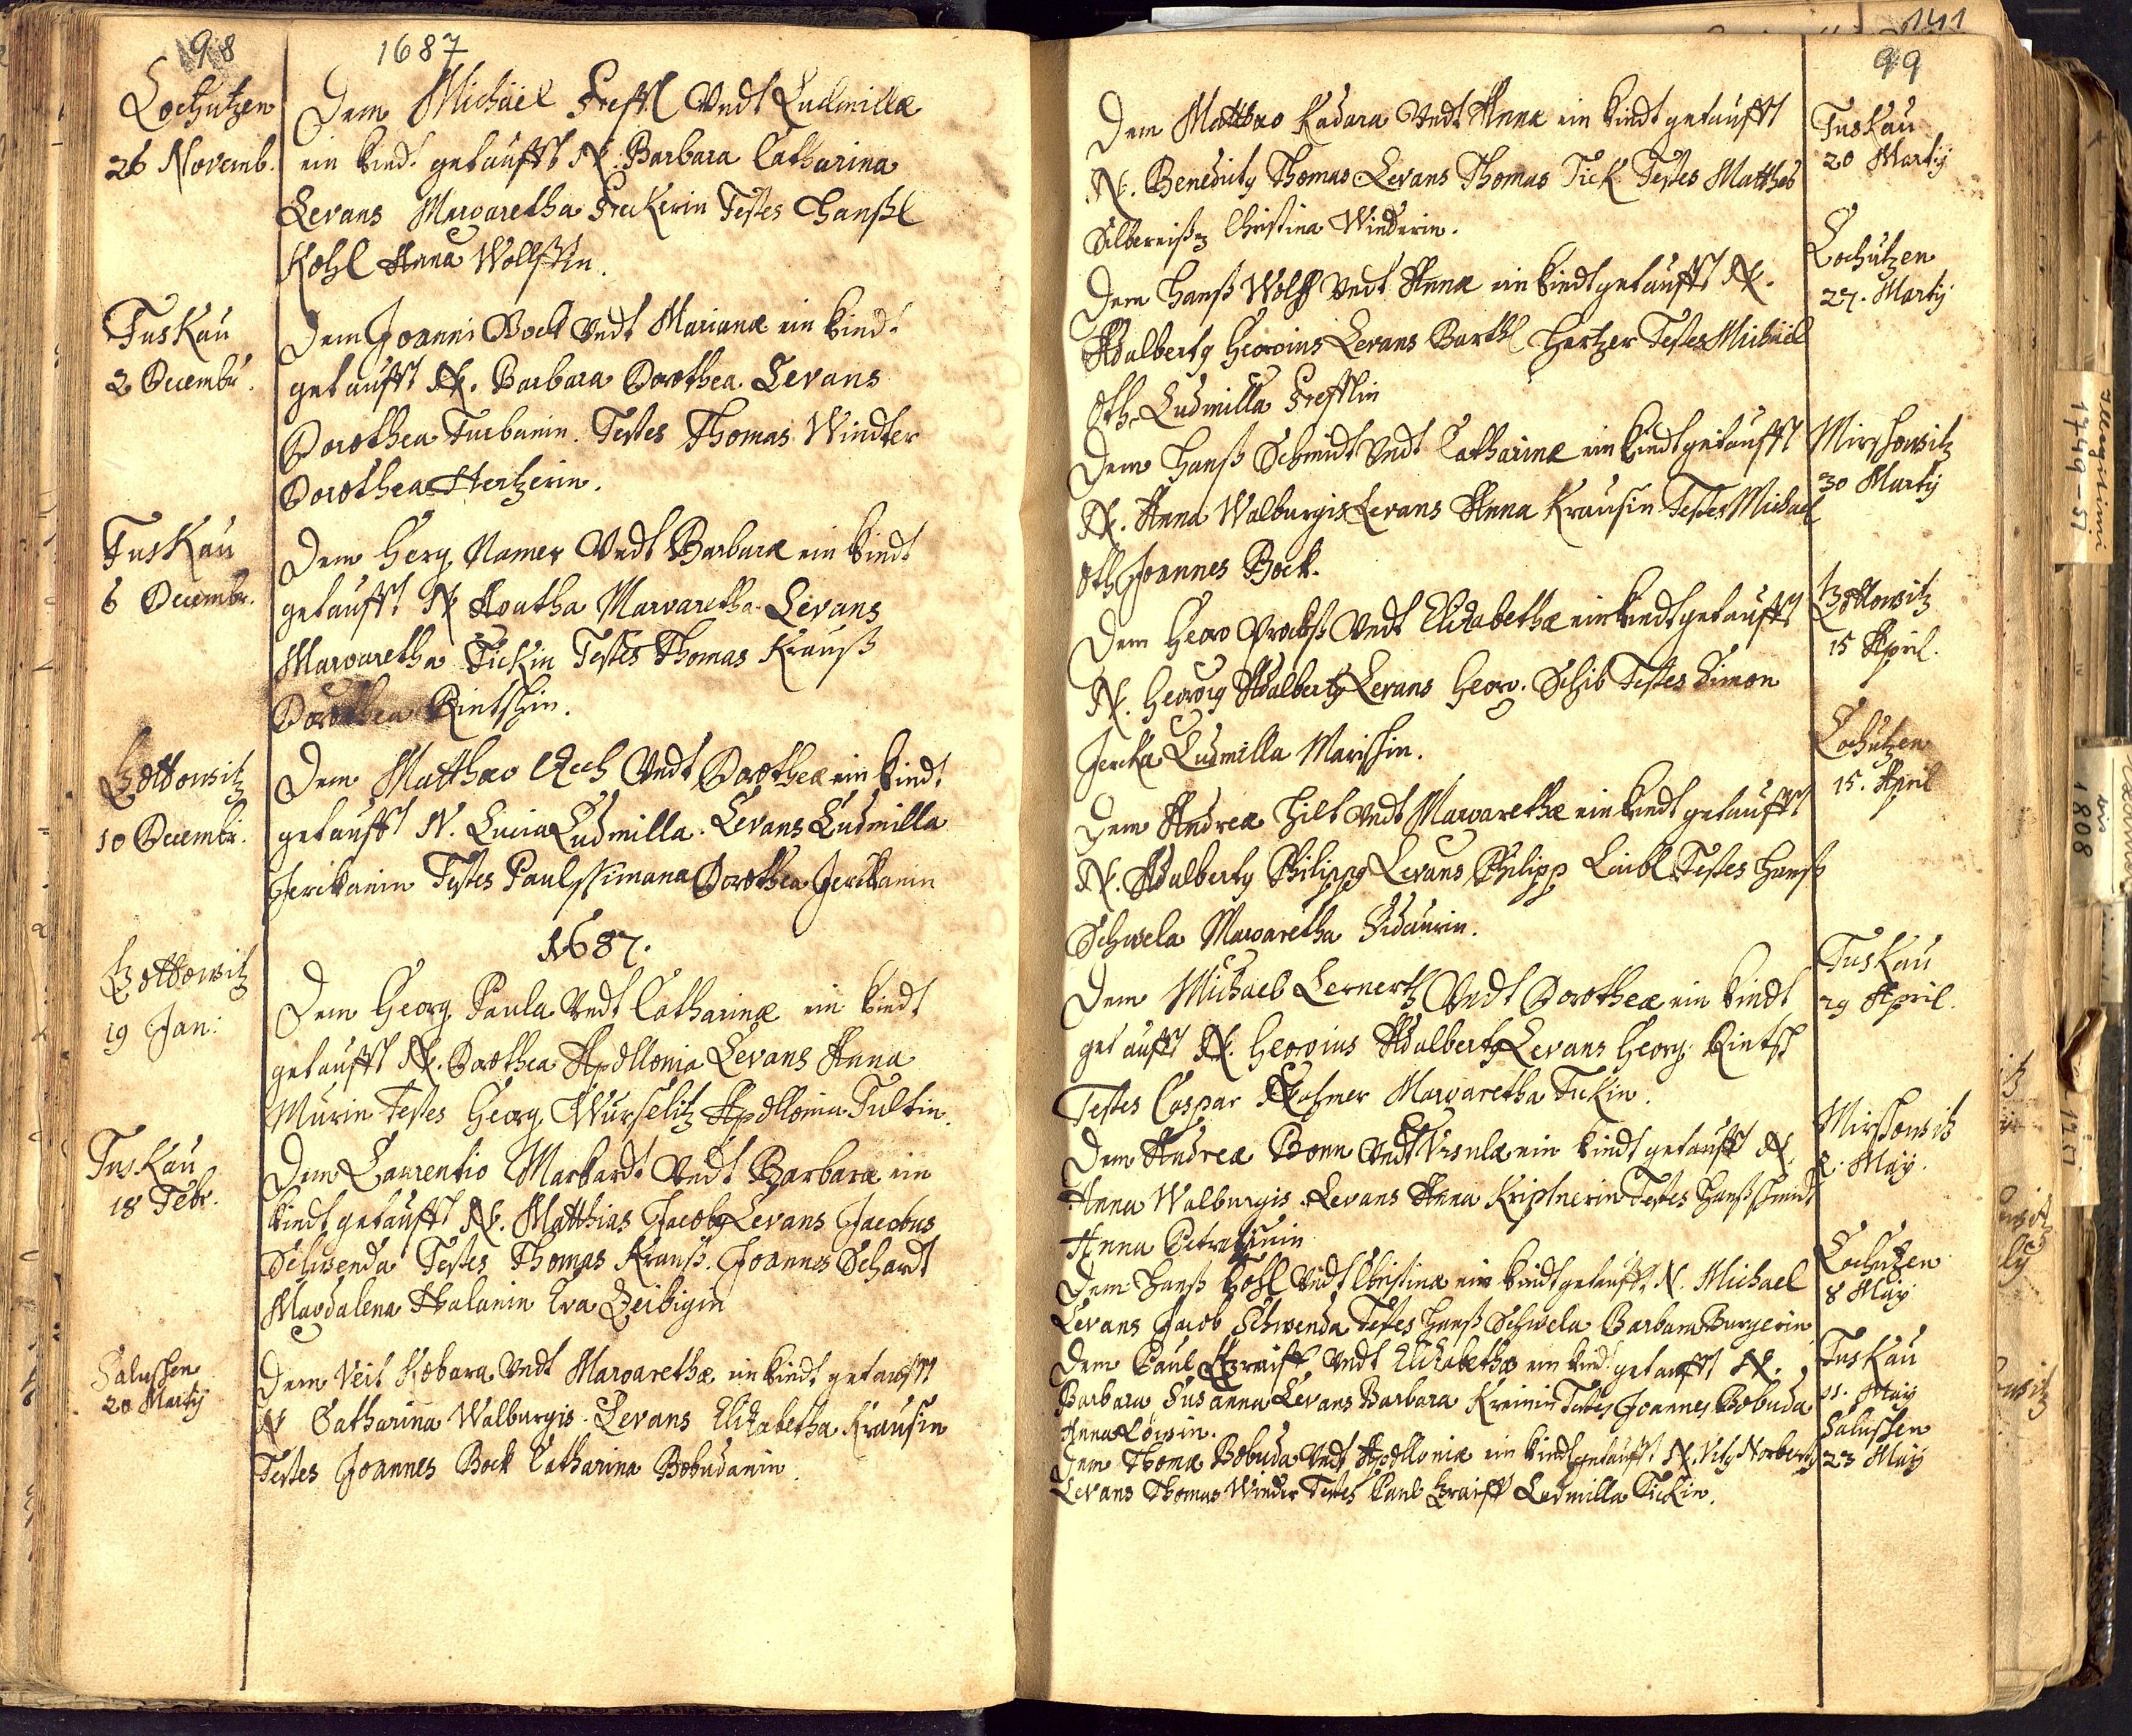 98
1687
Lochutzen
26 Novemb.
Dem Michäel Freffl Vndt Ludmillæ
ein kindt getaufft N. Barbara Catharina
Levans Margaretha Freckerin Testes Hanßl
Kohl Anna Wolffin.
Tuskau
2 Decembr.
Dem Joanni Bock Vndt Marianæ ein kindt
getaufft N. Barbara Dorothea Levans
Dorothea Turbanin. Testes Thomas Windter
Dorothea Hertzerin.
Tuskau
6 Decembr.
Dem Georg Namer Vndt Barbaræ ein kindt
getaufft N Agatha Margaretha Levans
Margaretha Tickin Testes Thomas Krauß
Dorothea Rintschin.
Tzottowitz
10 Decembr.
Dem Matthæo Vndt Dorotheæ ein kindt
getaufft N. Lucia Ludmilla. Levans Ludmilla
Jerickanin Testes Paul Ssimana Dorothea Jerickanin
1687.
Tzottowitz
19 Jan:
Dem Georg Paula Vndt Catharinæ ein kindt
getaufft N. Dorothea Apollonia Levans Anna
Murin Testes Georg Wurschlitz Apollonia Tultin.
Tuskau
18 Febr.
Dem Laurentio Markardt Vndt Barbaræ ein
kindt getaufft N. Matthias Jacobg Levans Jacobus
Schwenda Testes Thomas Krauß. Joannes Schardt
Magdalena Halanin Eva Zeibigin
Saluschen
20 Martij
Dem Veit Kobara Vndt Margarethæ ein kindt getaufft
N Catharina Walburgis. Levans Elizabetha Krausin
Testes Joannes Bock Catharina Bobudanin.
141
99
Dem Matthæo Kadara Vndt Annæ ein kindt getaufft
N. Benedictg Thomas Levans Thomas Tick Testes Mattheß
Silbereiß Christina Winderin.
Tuskau
20 Martij
Dem Hanß Wolff Vndt Annæ ein kindt getaufft N.
Adalbertg Georgius Levans Barthl Hertzer Testes Michäel
Oth Ludmilla Frefflin
Lochutzen
27. Martij
Dem Hanß Schmidt Vndt Catharinæ ein kindt getaufft
N. Anna Walburgis Levans Anna Krausin Testes Michael
Oth Joannes Bock.
Mirschowitz
30 Martij
Dem Georg Vndt Elizabethæ ein kindt getaufft
N. Georgig Adalbertg Levans Georg. Schib Testes Simon
Jericka Ludmilla Marischin.
Tzottowitz
15 April.
Dem Andreæ Hilt Vndt Margarethæ ein kindt getaufft
N. Adalbertg Philippg Levans Philipp Laibl Testes Hanß
Schwela Margaretha
Lochutzen
15. April
Dem Michael Lernertz Vndt Dorotheæ ein kindt
getaufft N. Georgius Adalbertg Levans Georg Rintsch
Testes Caspar Margaretha Tickin.
Tuskau
29 April.
Dem Andreæ Bonn Vndt Vrsulæ ein kindt getaufft N.
Anna Walburgis Levans Anna Kriptnerin Testes Hanß Schmidt
Anna
Mirschowitz
2. May.
Dem Hanß Kohl Vndt Christinæ ein kindt getaufft N. Michael
Levans Jacob Schwenda Testes Hanß Schwela Barbara Burgerin
Lochutzen
8 May
Dem Paul Vndt Elizabethæ ein kindt getaufft N.
Barbara Susanna Levans Barbara Kreinin Testes Joannes Bobuda
Anna Löwin.
Tuskau
21. May
Dem Thomæ Bobuda Vndt Apolloniæ ein kindt getaufft N. Vitg Norbertg
Levans Thomas Winder Testes Paul Ludmilla Tickin.
Saluschen
23 May
1749-51
1808